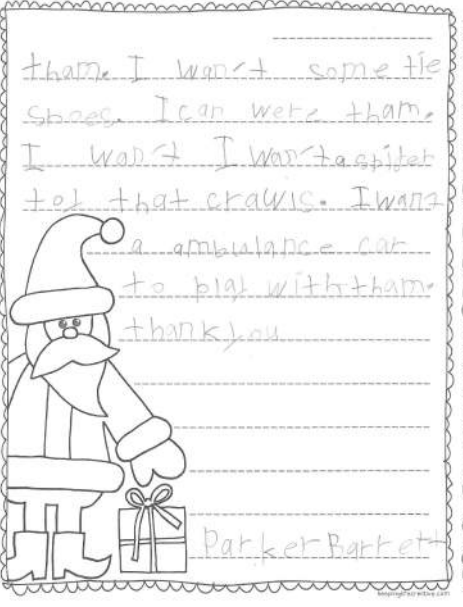 tham. I wan't some tie
shoes. I can were tham.
I wan't I wan't a spiter
toy that crawls. I want
a ambulance car
to play with tham.
thank you
Parker Barrett